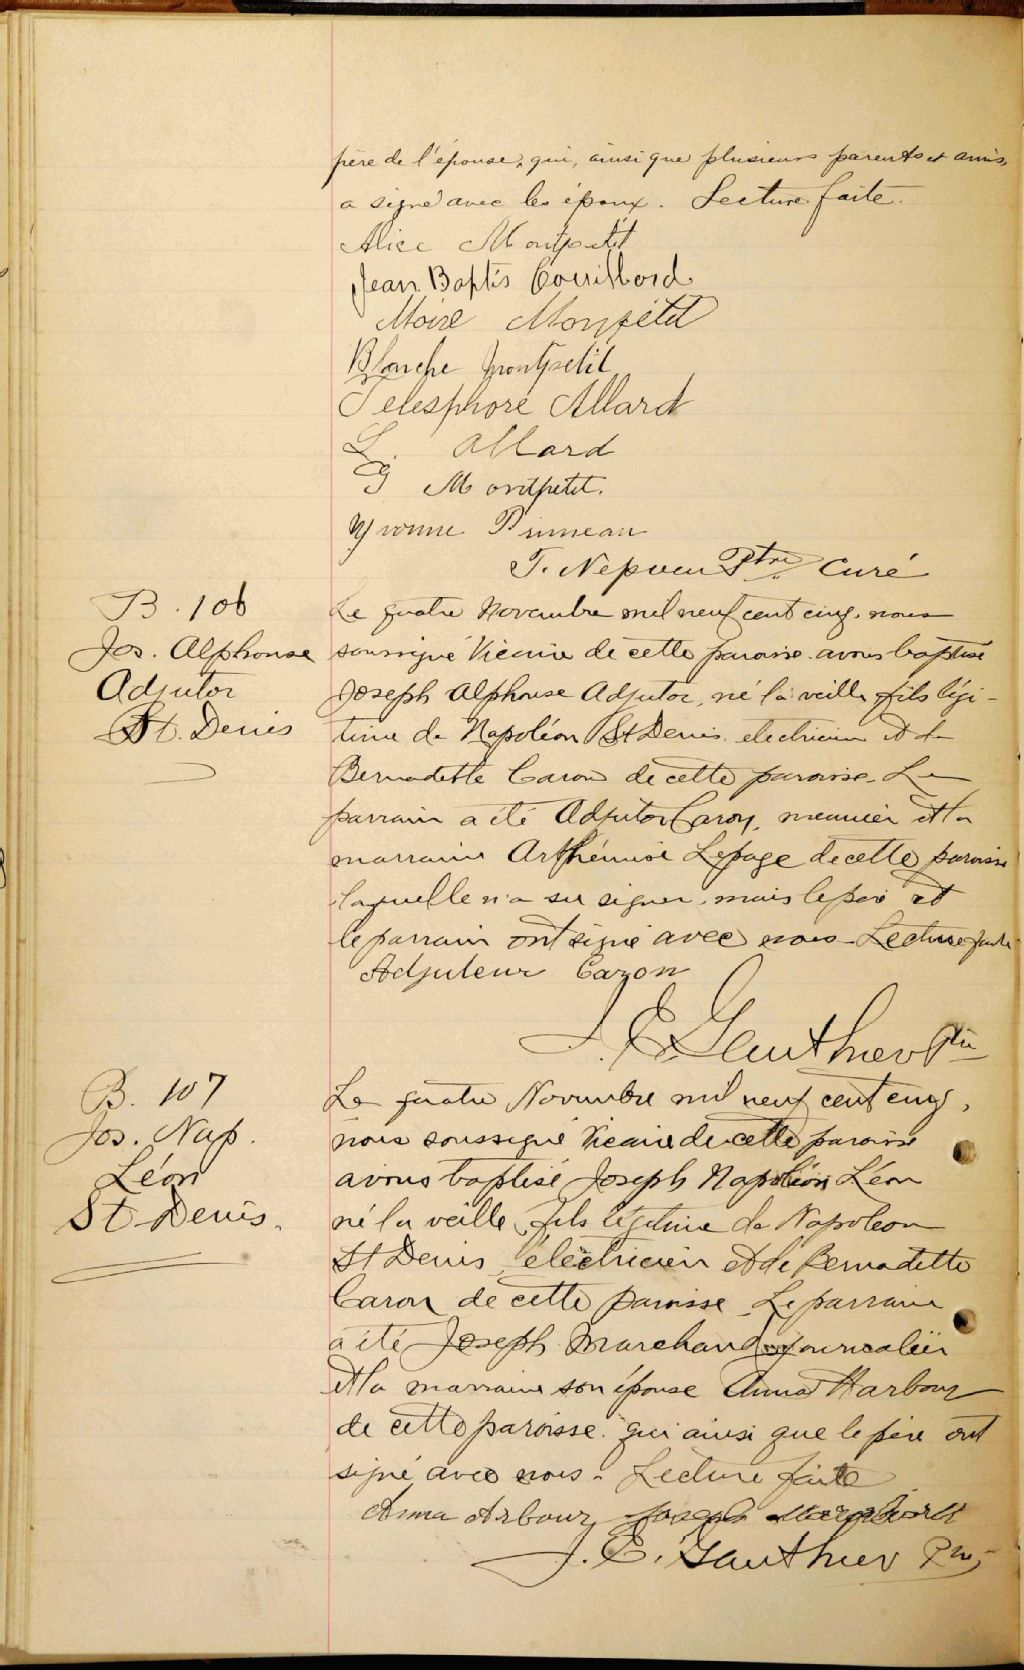 père de l'épouse, qui, ainsi que plusieurs parents et amis,
a signé avec les époux. Lecture faite.
Alice Montpetit
Jean Baptis
Montpétit
Blanche Montpetit
Telesphore Allard
L. Allard
G Montpetit.
Yvonne Primeau
T. Nepveu Ptre Curé
B. 106
Jos. Alphonse
Adjutor
St. Denis
Le quatre Novembre mil neuf cent cinq, nous
soussigné Vicaire de cette paroisse avons baptisé
Joseph Alphonse Adjutor, né la veille, fils légi-
time de Napoléon St Denis electricien et de
Bernadette Caron de cette paroisse. Le
parrain a été Adjutor Caron, meunier et la
marraine Arthémise Lepage de cette paroisse
laquelle n'a su signer, mais le père et
le parrain ont signé avec nous. Lecture faite
Adjuteur Caron
J. E. Gauthier Ptre
B. 107
Jos. Nap.
Léon
St Denis.
Le quatre Novembre mil neuf cent cinq,
nous soussigné Vicaire de cette paroisse
avons baptisé Joseph Napoléon Léon
né la veille, fils légitime de Napoleon
St Denis, électricien et de Bernadette
Caron de cette paroisse. Le parrain
a été Joseph Marchand journalier
et la marraine son épouse Anna Harbour
de cette paroisse. qui ainsi que le père ont
signé avec nous. Lecture faite
Anna Arbour Joseph
J. E. Gauthier Ptre